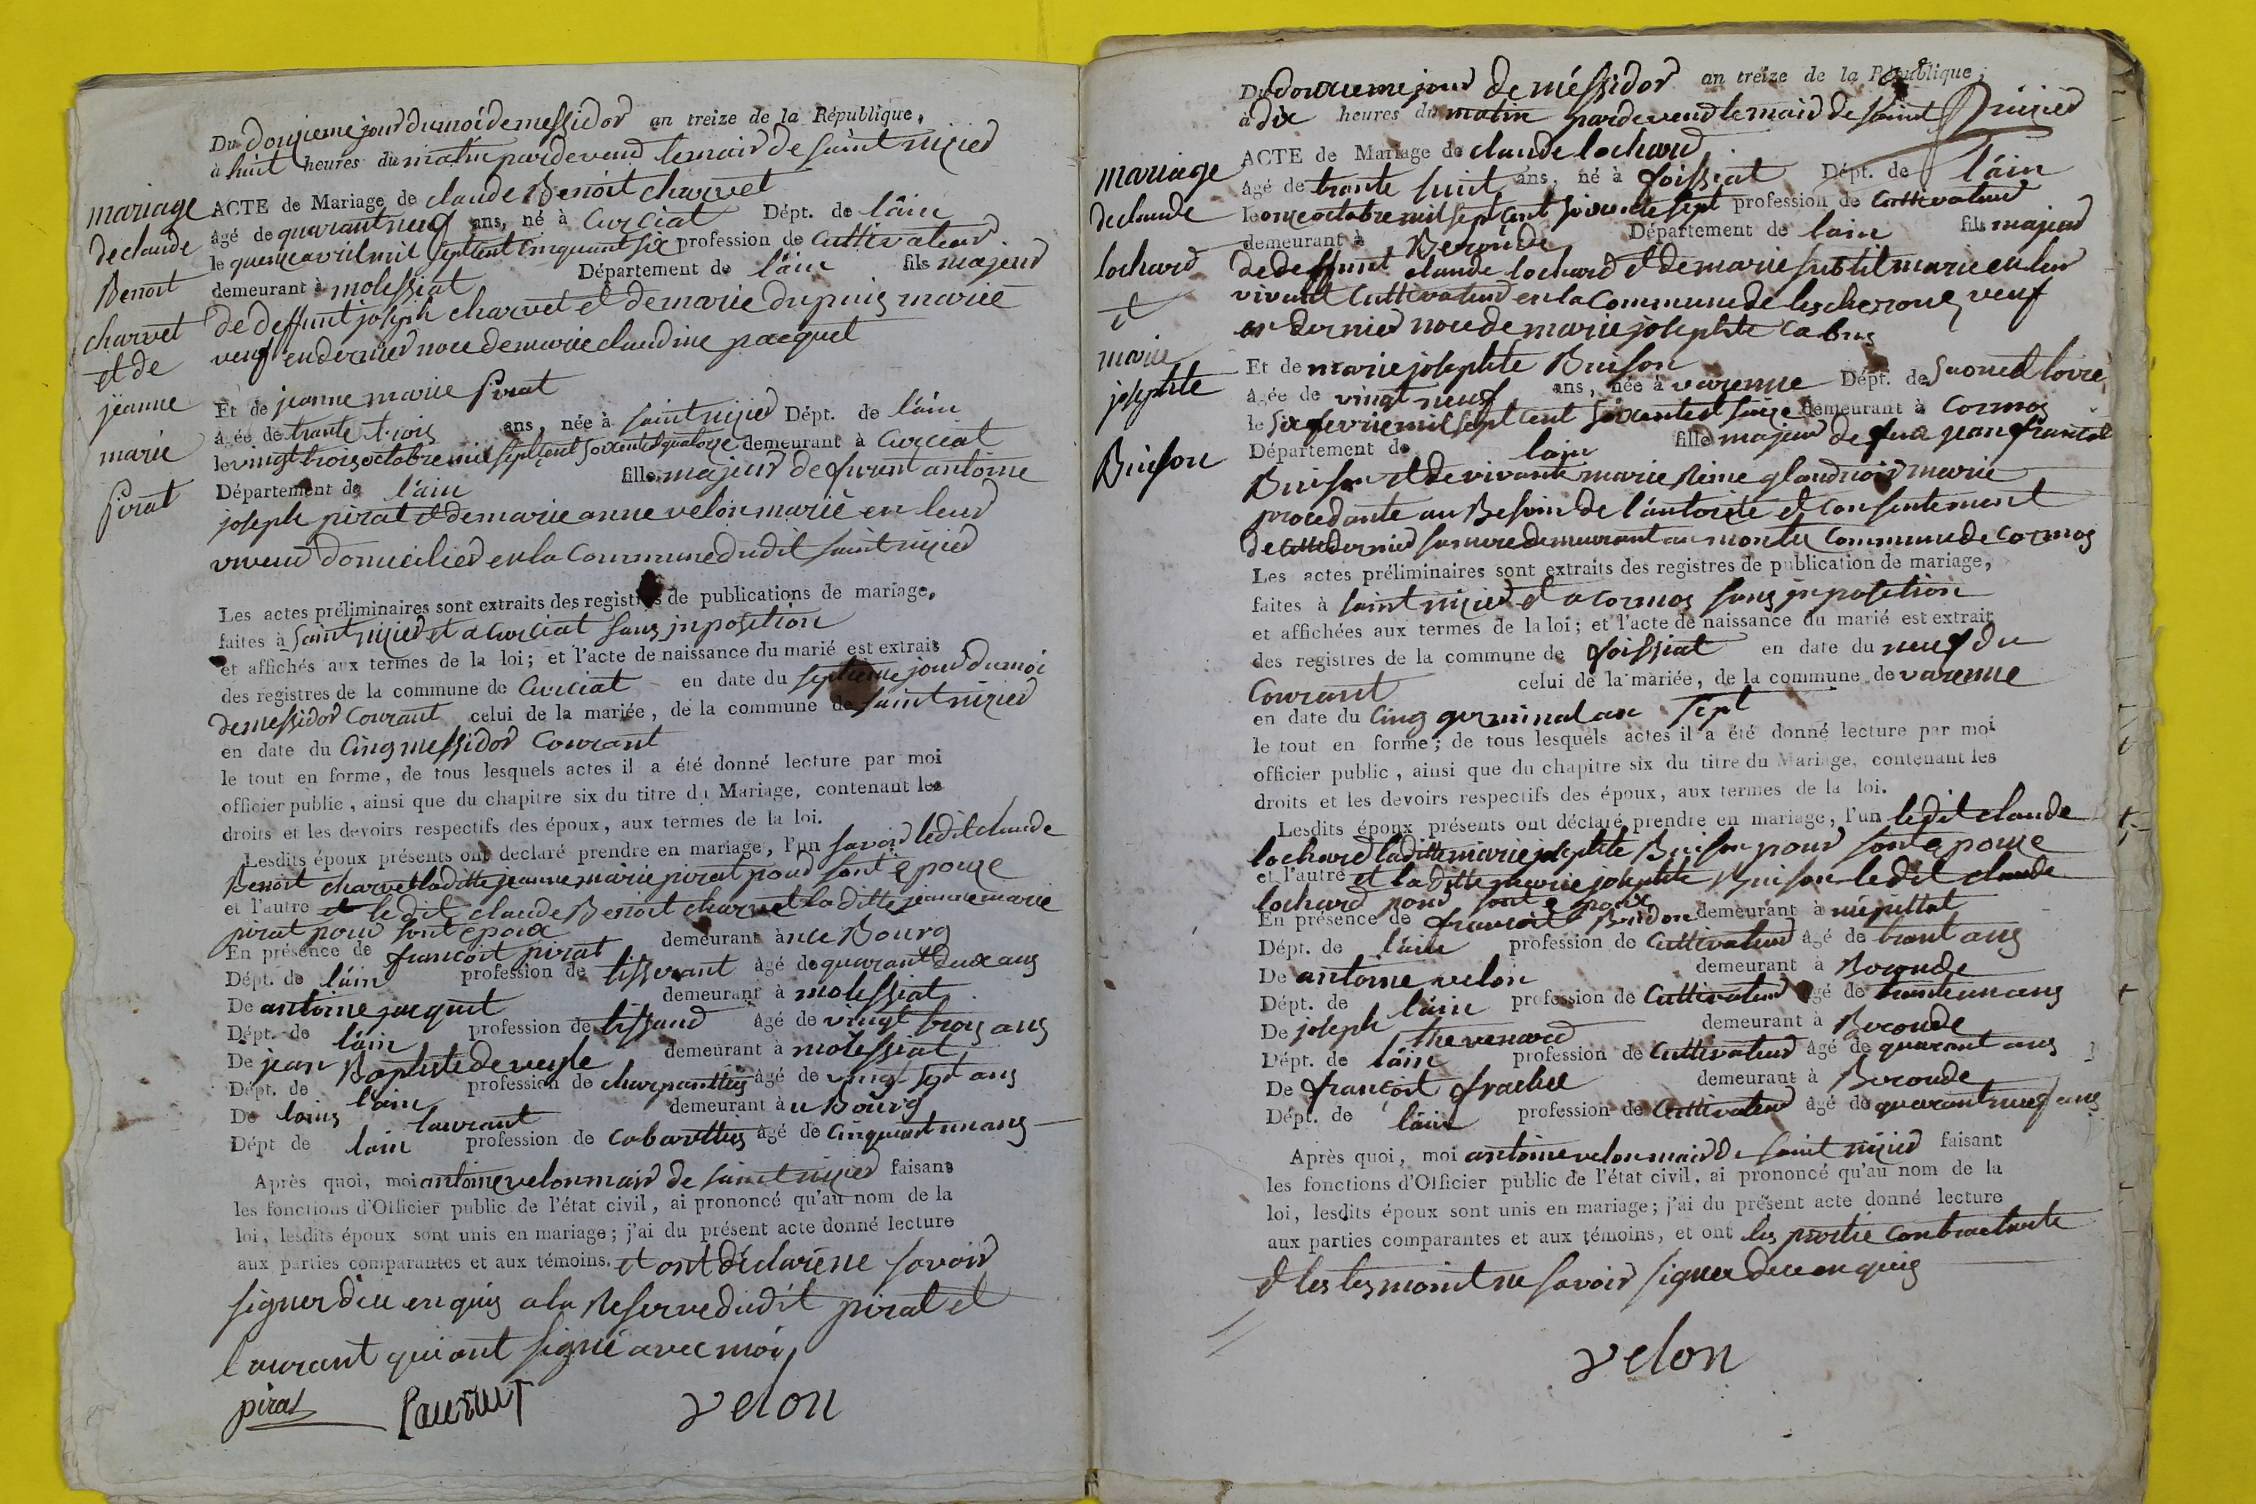 Du douzieme jour du moi de messidor an treize de la République,
à huit heures du matin pardevend le maird de saint nizied
mariage
de claude
Benoit
charvet
et de
jeanne
marie
pirat
ACTE de Mariage de claude Benoit charvet
âgé de quarant neuf ans, né à Curciat Dépt. de l'âin
le quenze avril mil septcent cinquant six profession de Cultivateur
demeurant à molessiat Département de l'âin fils majeur
de deffunt joseph charvet et de marie dupuis marieé
veuf en dernier noce de marie claudine pacquet
Et de jeanne marie pirat
âgée de trante trois ans, née à saint nizied Dépt. de l'âin
le vingt trois octobre mil septcent soixente quatorze demeurant à Curciat
Département de l'âin fille majeur de furent antoine
joseph pirat et de marie anne velon marié en leur
viveur domicilier en la Commune dudit saint nizied
Les actes préliminaires sont extraits des registres de publications de mariage,
faites à saint nizied et a Curciat sans jnposition
et affichés aux termes de la loi; et l'acte de naissance du marié est extrais
des registres de la commune de Curciat en date du septieme jour du moi
de messidor Courant celui de la mariée, de la commune de saint nizied
en date du Cinq messidor Courant
le tout en forme, de tous lesquels actes il a été donné lecture par moi
officier public, ainsi que du chapitre six du titre du Mariage, contenant les
droits et les devoirs respectifs des époux, aux termes de la loi.
Lesdits époux présents ont declaré prendre en mariage, l'un savoir ledit claude
Benoit charvet laditte jeanne marie pirat pour sont épouze
et l'autre et le dit claude Benoit charvet la ditte jeanne marie
pirat pour sont epoux
En présence de françoit pirat demeurant à nle Bourg
Dépt. de l'âin profession de tisserant âgé de quarant deux ans
De antoine jacquet demeurant à molessiat
Dépt. de l'âin profession de tissand âgé de vingt trois ans
De jean Baptiste deveyle demeurant à molessiat
Dépt. de l'ain profession de charpanttier âgé de vingt sept ans
De louis laurant demeurant à u Bourg
Dépt de l'ain profession de Cabarettier âgé de Cinquant un ans
Après quoi, moi antoine velon maird de saint nizied faisans
les fonctions d'Officier public de l'état civil, ai prononcé qu'au nom de la
loi, lesdits époux sont unis en mariage; j'ai du présent acte donné lecture
aux parties comparantes et aux témoins. et ont déclarée ne savoir
signer d'ce enquis a la Reserve dudit pirat et
laurant qui ont signé avec moi,
pirat laurant velon
Du douxieme jour de méssidor an treize de la République;
à dix heures du matin pardevend le maird de saint nizied
mariage
de claude
lochard
et
marie
josephte
Buison
ACTE de Mariage de claude lochard
âgé de trante huit ans, né à foissiat Dépt. de l'âin
le onze octobre mil sept cent soixente sept profession de Cultivateur
demeurant à Beroude Département de lain fils majeur
de deffunt claude lochard et de marie subtil marie en leur
vivant Cultivateur en la Commune de lescheroux veuf
en dernier noce de marie josephte Cabus
Et de marie josephte Buison
âgée de vingt neuf ans, née à varenne Dépt. de Saone et loire,
le six fevrie mil sept cent soixente et saize demeurant à Cormos
Département de lain fille majeur de feux jean francoit
Buison et de vivante marie Reine glaudnoir marie
procedante au Besoin de l'autorite et Consentement
de cette dernier sa mere demeurant au montet Commune de Cormos
Les actes préliminaires sont extraits des registres de publication de mariage,
faites à saint nizied et a cormos sans jnposition
et affichées aux termes de la loi; et l'acte de naissance du marié est extrait
des registres de la commune de foissiat en date du neuf du
Courant celui de la mariée, de la commune de varenne
en date du Cinq germinal an sept
le tout en forme; de tous lesquels actes il a été donné lecture par moi
officier public, ainsi que du chapitre six du titre du Mariage, contenant les
droits et les devoirs respectifs des époux, aux termes de la loi.
Lesdits époux présents ont déclaré prendre en mariage, l'un ledit claude
lochard laditte marie josephte Buison pour sont epouze
et l'autre et la ditte marie josephte Buison ledit claude
lochard pour sont e poux
En présence de francoit Buidon demeurant à néputtat
Dépt. de l'ain profession de Cultivateur âgé de trant ans
De antoine velon demeurant à Beroude
Dépt. de l'âin profession de Cultivateur âgé de trante un ans
De joseph thevenard demeurant à Beroude
Dépt. de lâin profession de Cultivateur âgé de quarant ans
De françoit frachet demeurant à Beroude
Dépt. de l'âin profession de Cultivateur âgé de quarant neuf ans
Après quoi, moi antoine velon maird de saint nizied faisant
les fonctions d'Officier public de l'état civil, ai prononcé qu'au nom de la
loi, lesdits époux sont unis en mariage; j'ai du présent acte donné lecture
aux parties comparantes et aux témoins, et ont les partie contractante
et les tesmoint ne savoir signer d'ce en quis
velon